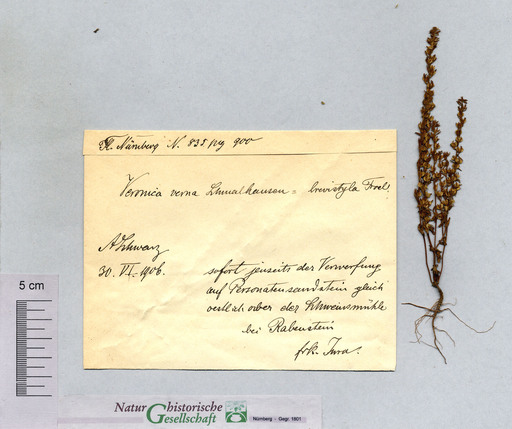 Fl. Nürnberg N. 835 pg 900
Veronica verna Schmalhausen = brevistyla Freel!
A Schwarz
30. VI. 1906.
sofort jenseits der Verwerfung
auf Personatensandstein gleich
oestlich ober der Schweinsmühle
bei Rabenstein
frk. Jura.
5 cm
Naturhistorische
Gesellschaft
Nürnberg - Gegr. 1801